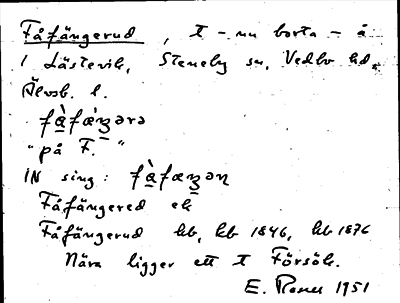 Fåfängerud, t - nu borta - å
i Lästvik, Steneby sn, Vedbo hd.
Älvsb. l.
fàfæ̀ʒərə
"på F."
IN sing: fàfæʒəɳ
Fåfängered ek
Fåfängerud kb, kb 1846, kb 1876
Nära ligger ett t Försök.
E. Rosell 1951